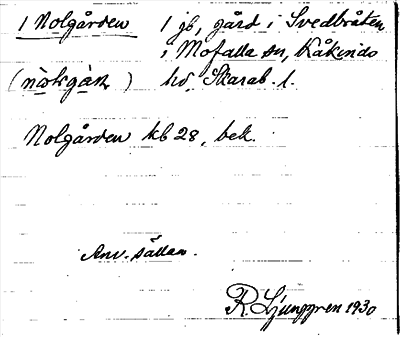 1 Nolgården 1 jb, gård i Svedbråten
i Mofalla sn, Kåkinds
(nolgån) hd, Skarab. l.
Nolgården kb 28, bek.
Anv. sällan.
R. Ljunggren 1930